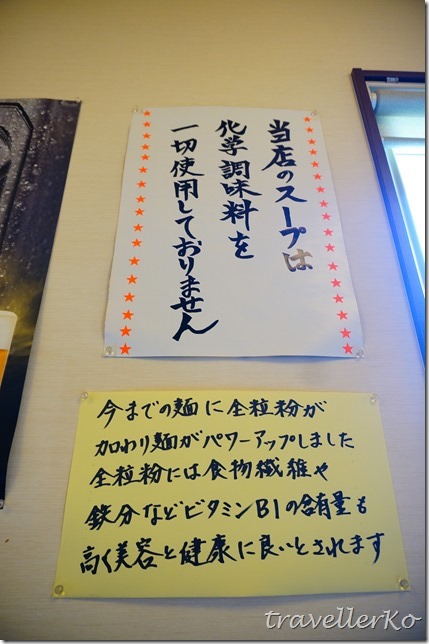 当店のスープは
化学調味料を
一切使用しておりません
今までの麺に全粒粉が
加わり麺がパワーアップしました
全粒粉には食物繊維や
鉄分などビタミンB1の含有量も
高く美容と健康に良いとされます
travellerKo